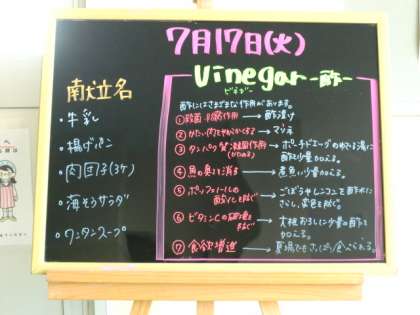 7月17日(火)
献立名
・牛乳
・揚げパン
・肉団子(3ケ)
・海そうサラダ
・ワンタンスープ
Vinegar -酢-
ビネガー
酢にはさまざまな作用があります。
① 殺菌・防腐作用 → 酢漬け
② かたい肉をやわらかくする → マリネ
③ タンパク質凝固作用 → ポーチドエッグのゆで湯に
(かためる) 酢を少量加える。
④ 魚の臭み消す → 煮魚に少量加える。
⑤ ポリフェノールの → ごぼうやレンコンを酢水に
酸化を防ぐ さらし、変色を防ぐ。
⑥ ビタミンCの破壊を → 大根おろしに少量の酢を
防ぐ 加える。
⑦ 食欲増進 → 夏場でもさっぱり食べられる。